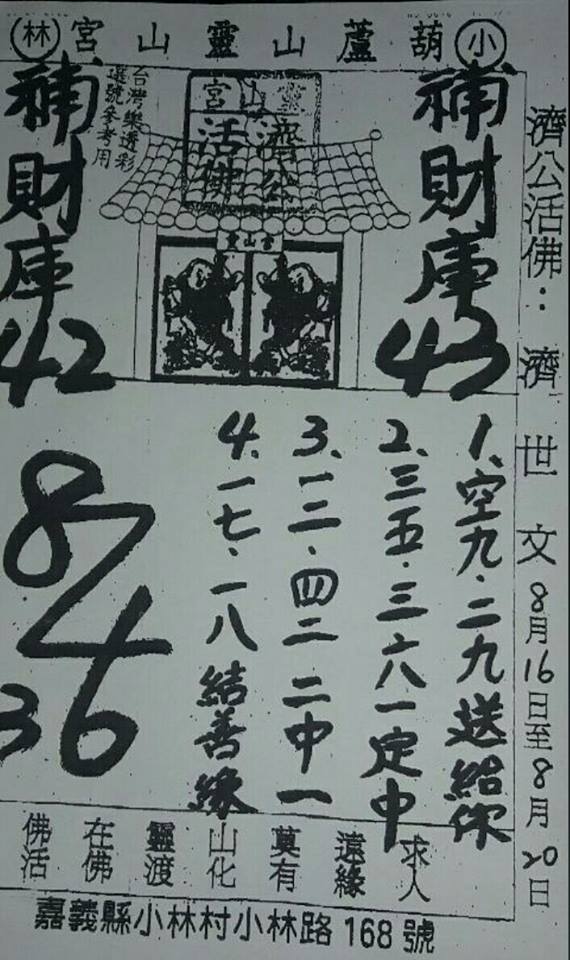 (林)宮山靈山蘆葫(小)
台灣樂透彩
選號參考用
靈山宮
濟公
活佛
宮山靈
補財庫
43
補財庫
42
濟公活佛：濟世文8月16日至8月20日
1、空九·二九送給你
2、三五·三六一定中
3、一二·四二二中一
4、一七·一八結善緣
8
4
36
求人
遠緣
莫有
山化
靈渡
在佛
佛活
嘉義縣小林村小林路168號